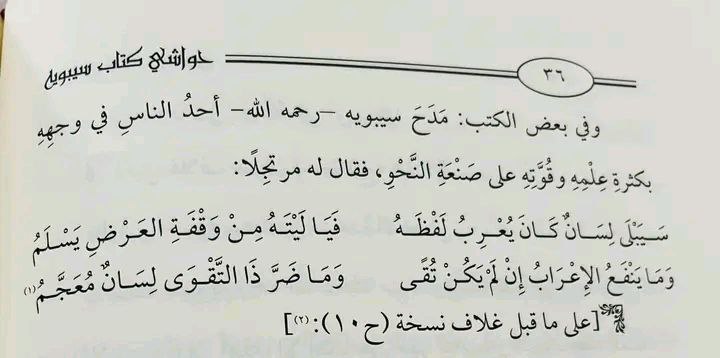 حواشي كتاب سيبويه
٣٦
وفي بعض الكتب: مَدَحَ سيبويه –رحمه الله– أحدُ الناسِ في وجهِهِ
بكثرةِ عِلْمِهِ وقُوَّتِهِ على صَنْعَةِ النَّحْوِ، فقال له مرتجِلًا:
سَيَبْلَى لِسَانٌ كَانَ يُعْرِبُ لَفْظَهُ فَيَا لَيْتَهُ مِنْ وَقْفَةِ العَرْضِ يَسْلَمُ
وَمَا يَنْفَعُ الإِعْرَابُ إِنْ لَمْ يَكُنْ تُقًى وَمَا ضَرَّ ذَا التَّقْوَى لِسَانٌ مُعَجَّمُ (١)
[على ما قبل غلاف نسخة (ح١٠):(٢)]